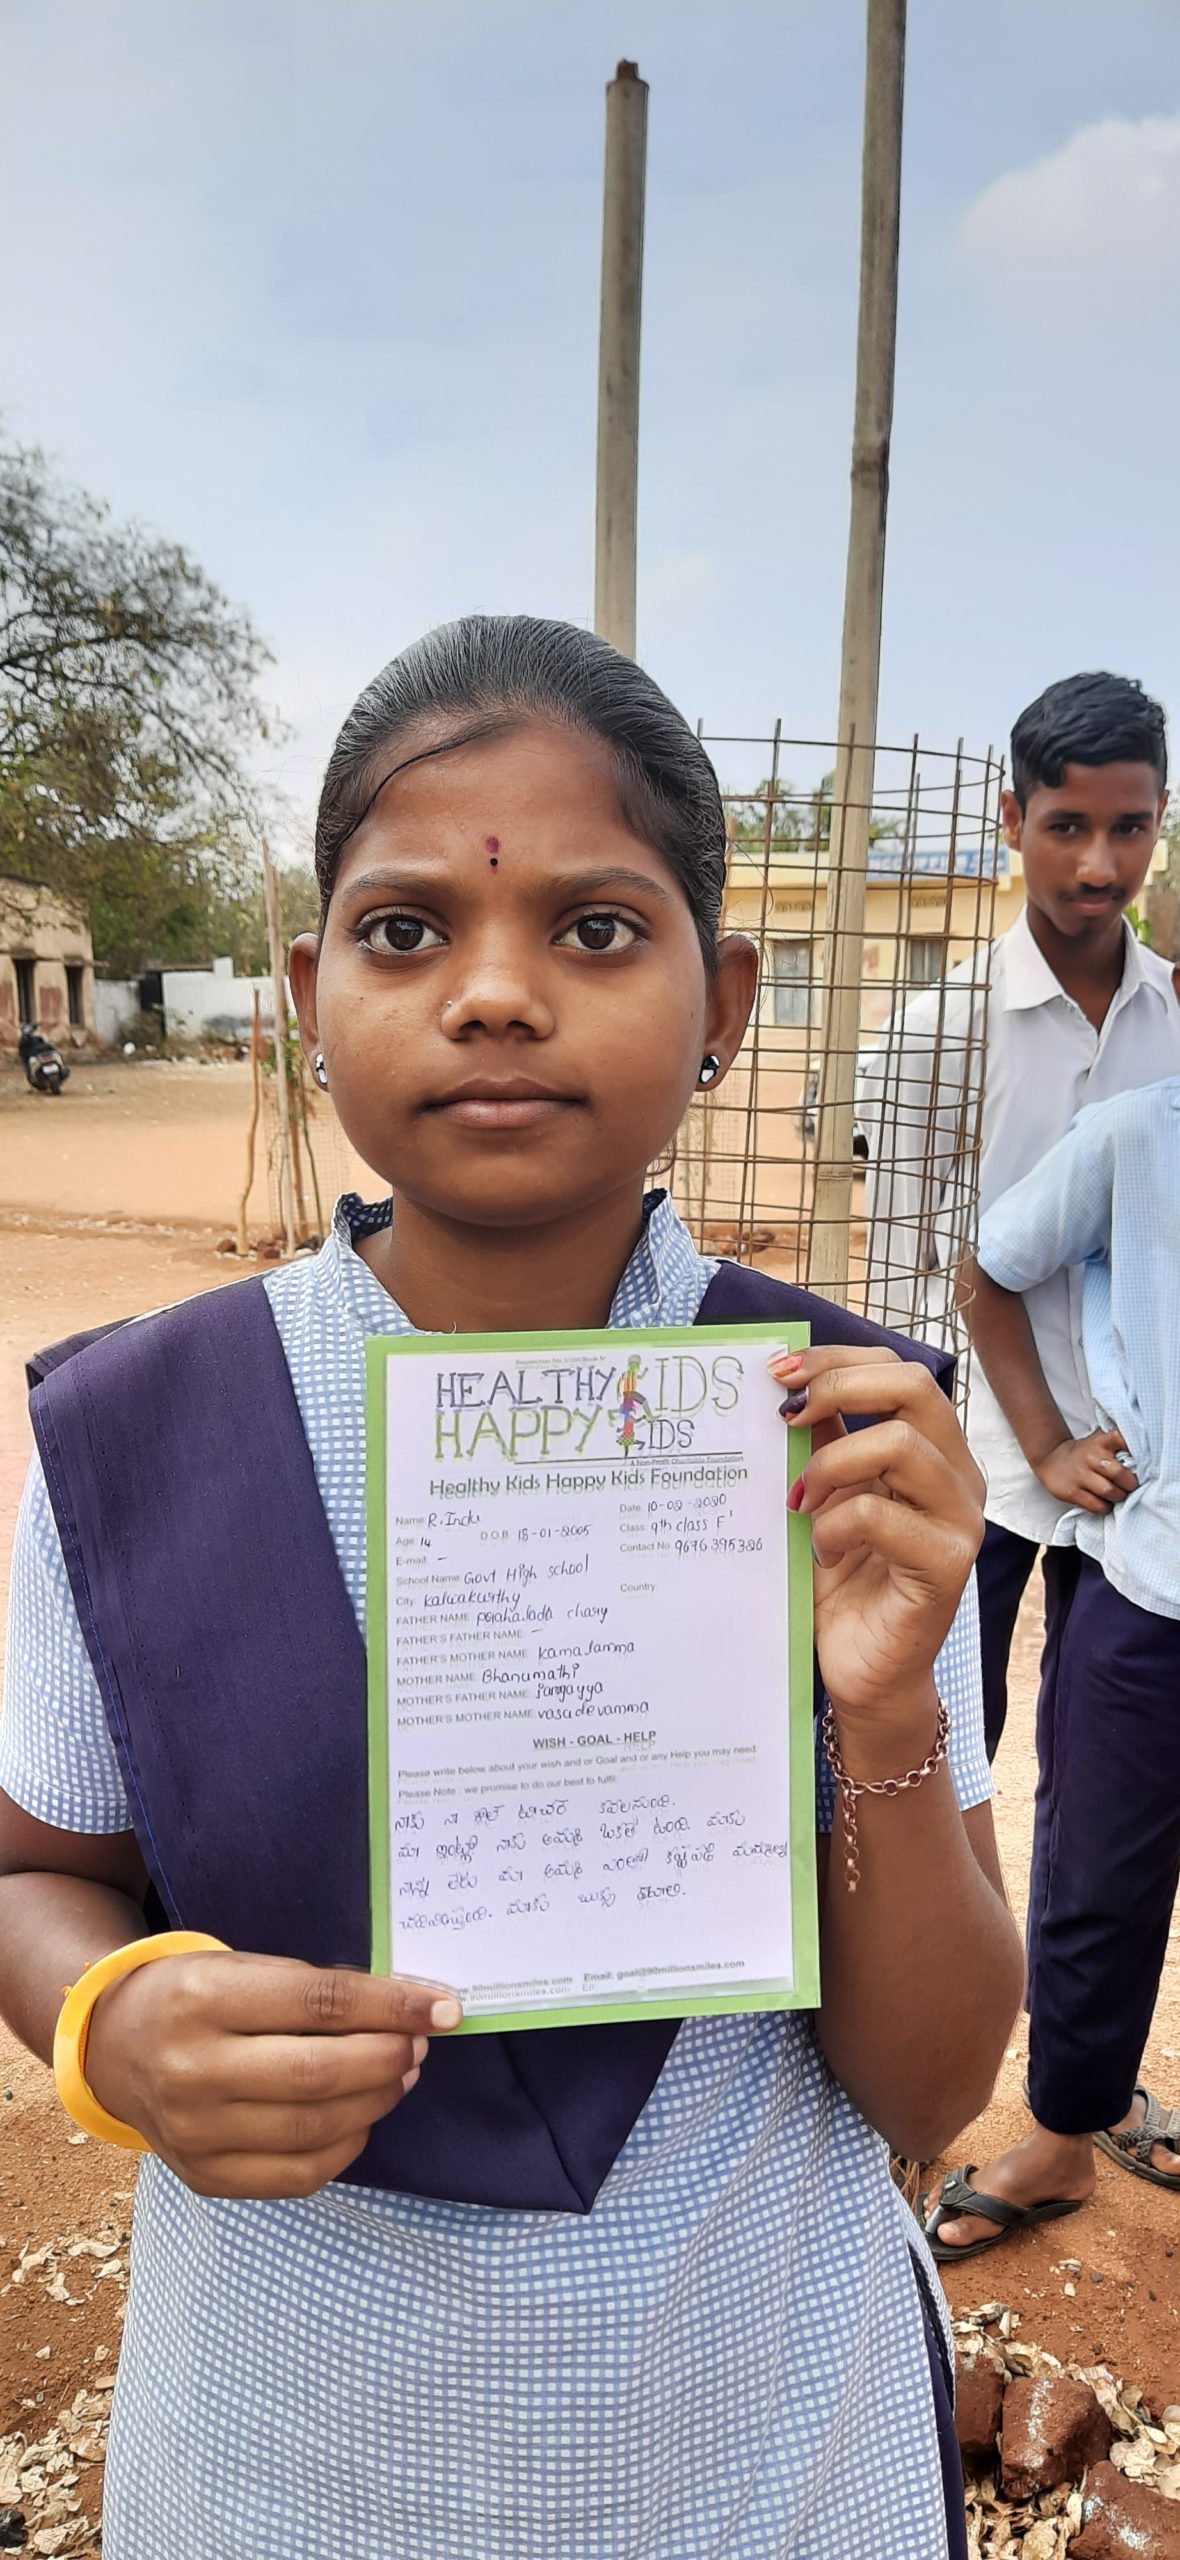 HEALTHY KIDS
HAPPY KIDS
A Non-Profit Charitable Foundation
Healthy Kids Happy Kids Foundation
Name: R. Indu
Date: 10-02-2020
Age: 14 D.O.B 18-01-2005
Class: 9th class F'
E-mail: -
Contact No. 9676395386
School Name: Govt High school
City: kalwakurthy
Country:
FATHER NAME: prahalada chary
FATHER'S FATHER NAME: -
FATHER'S MOTHER NAME: kamalamma
MOTHER NAME: Bhanumathi
MOTHER'S FATHER NAME: jangayya
MOTHER'S MOTHER NAME: vasudevamma
WISH - GOAL - HELP
Please write below about your wish and or Goal and or any Help you may need.
Please Note : we promise to do our best to fulfil:
నాకు నా టీచర్
మా ఇంట్లో నాకు అమ్మ ఒకతే ఉంది. మాకు
నాన్న లేరు మా అమ్మ కష్టపడి మమ్మల్ని
చదివిస్తుంది. మాకు బుక్స్ కావాలి.
www.90millionsmiles.com Email: goal@90millionsmiles.com